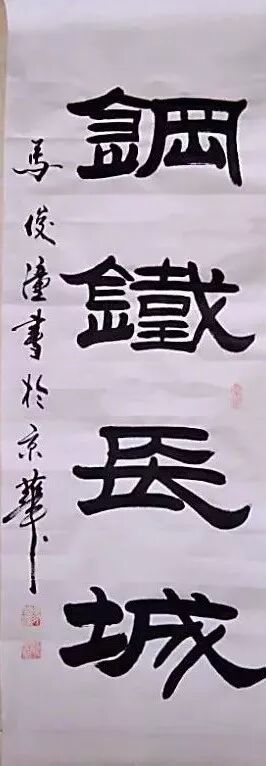 鋼鐵長城
馬俊潼書於京華